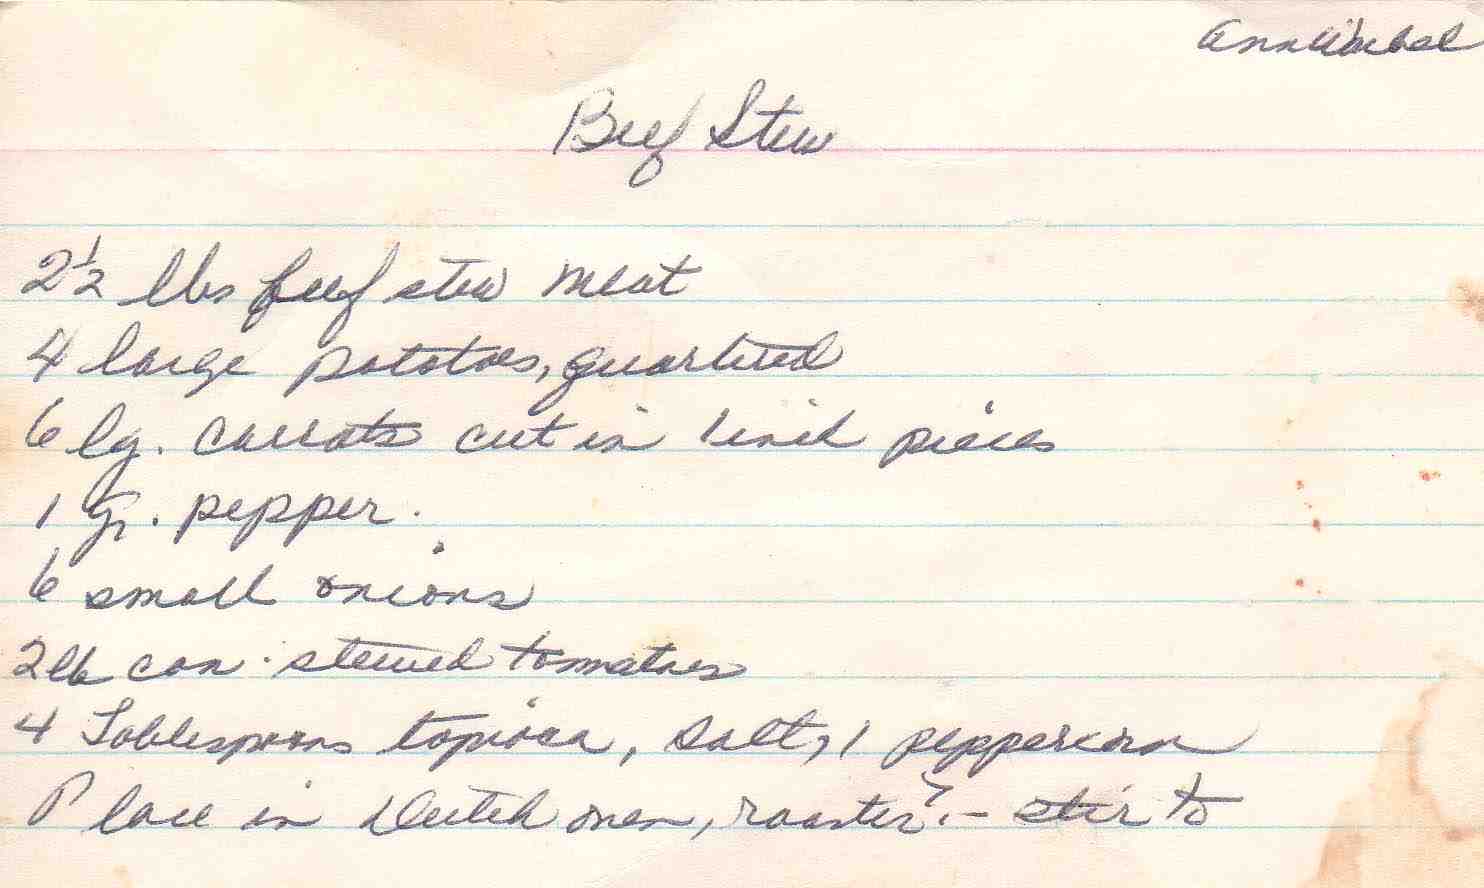 Beef Stew
2 1/2 lbs beef stew meat
4 large potatoes, quartered
6 lg. carrots cut in 1 inch pieces
1 gr. pepper.
6 small onions
2 lb can stewed tomatoes
4 Tablespoons tapioca, salt, 1 peppercorn
Place in Dutch oven, roaster - stir to